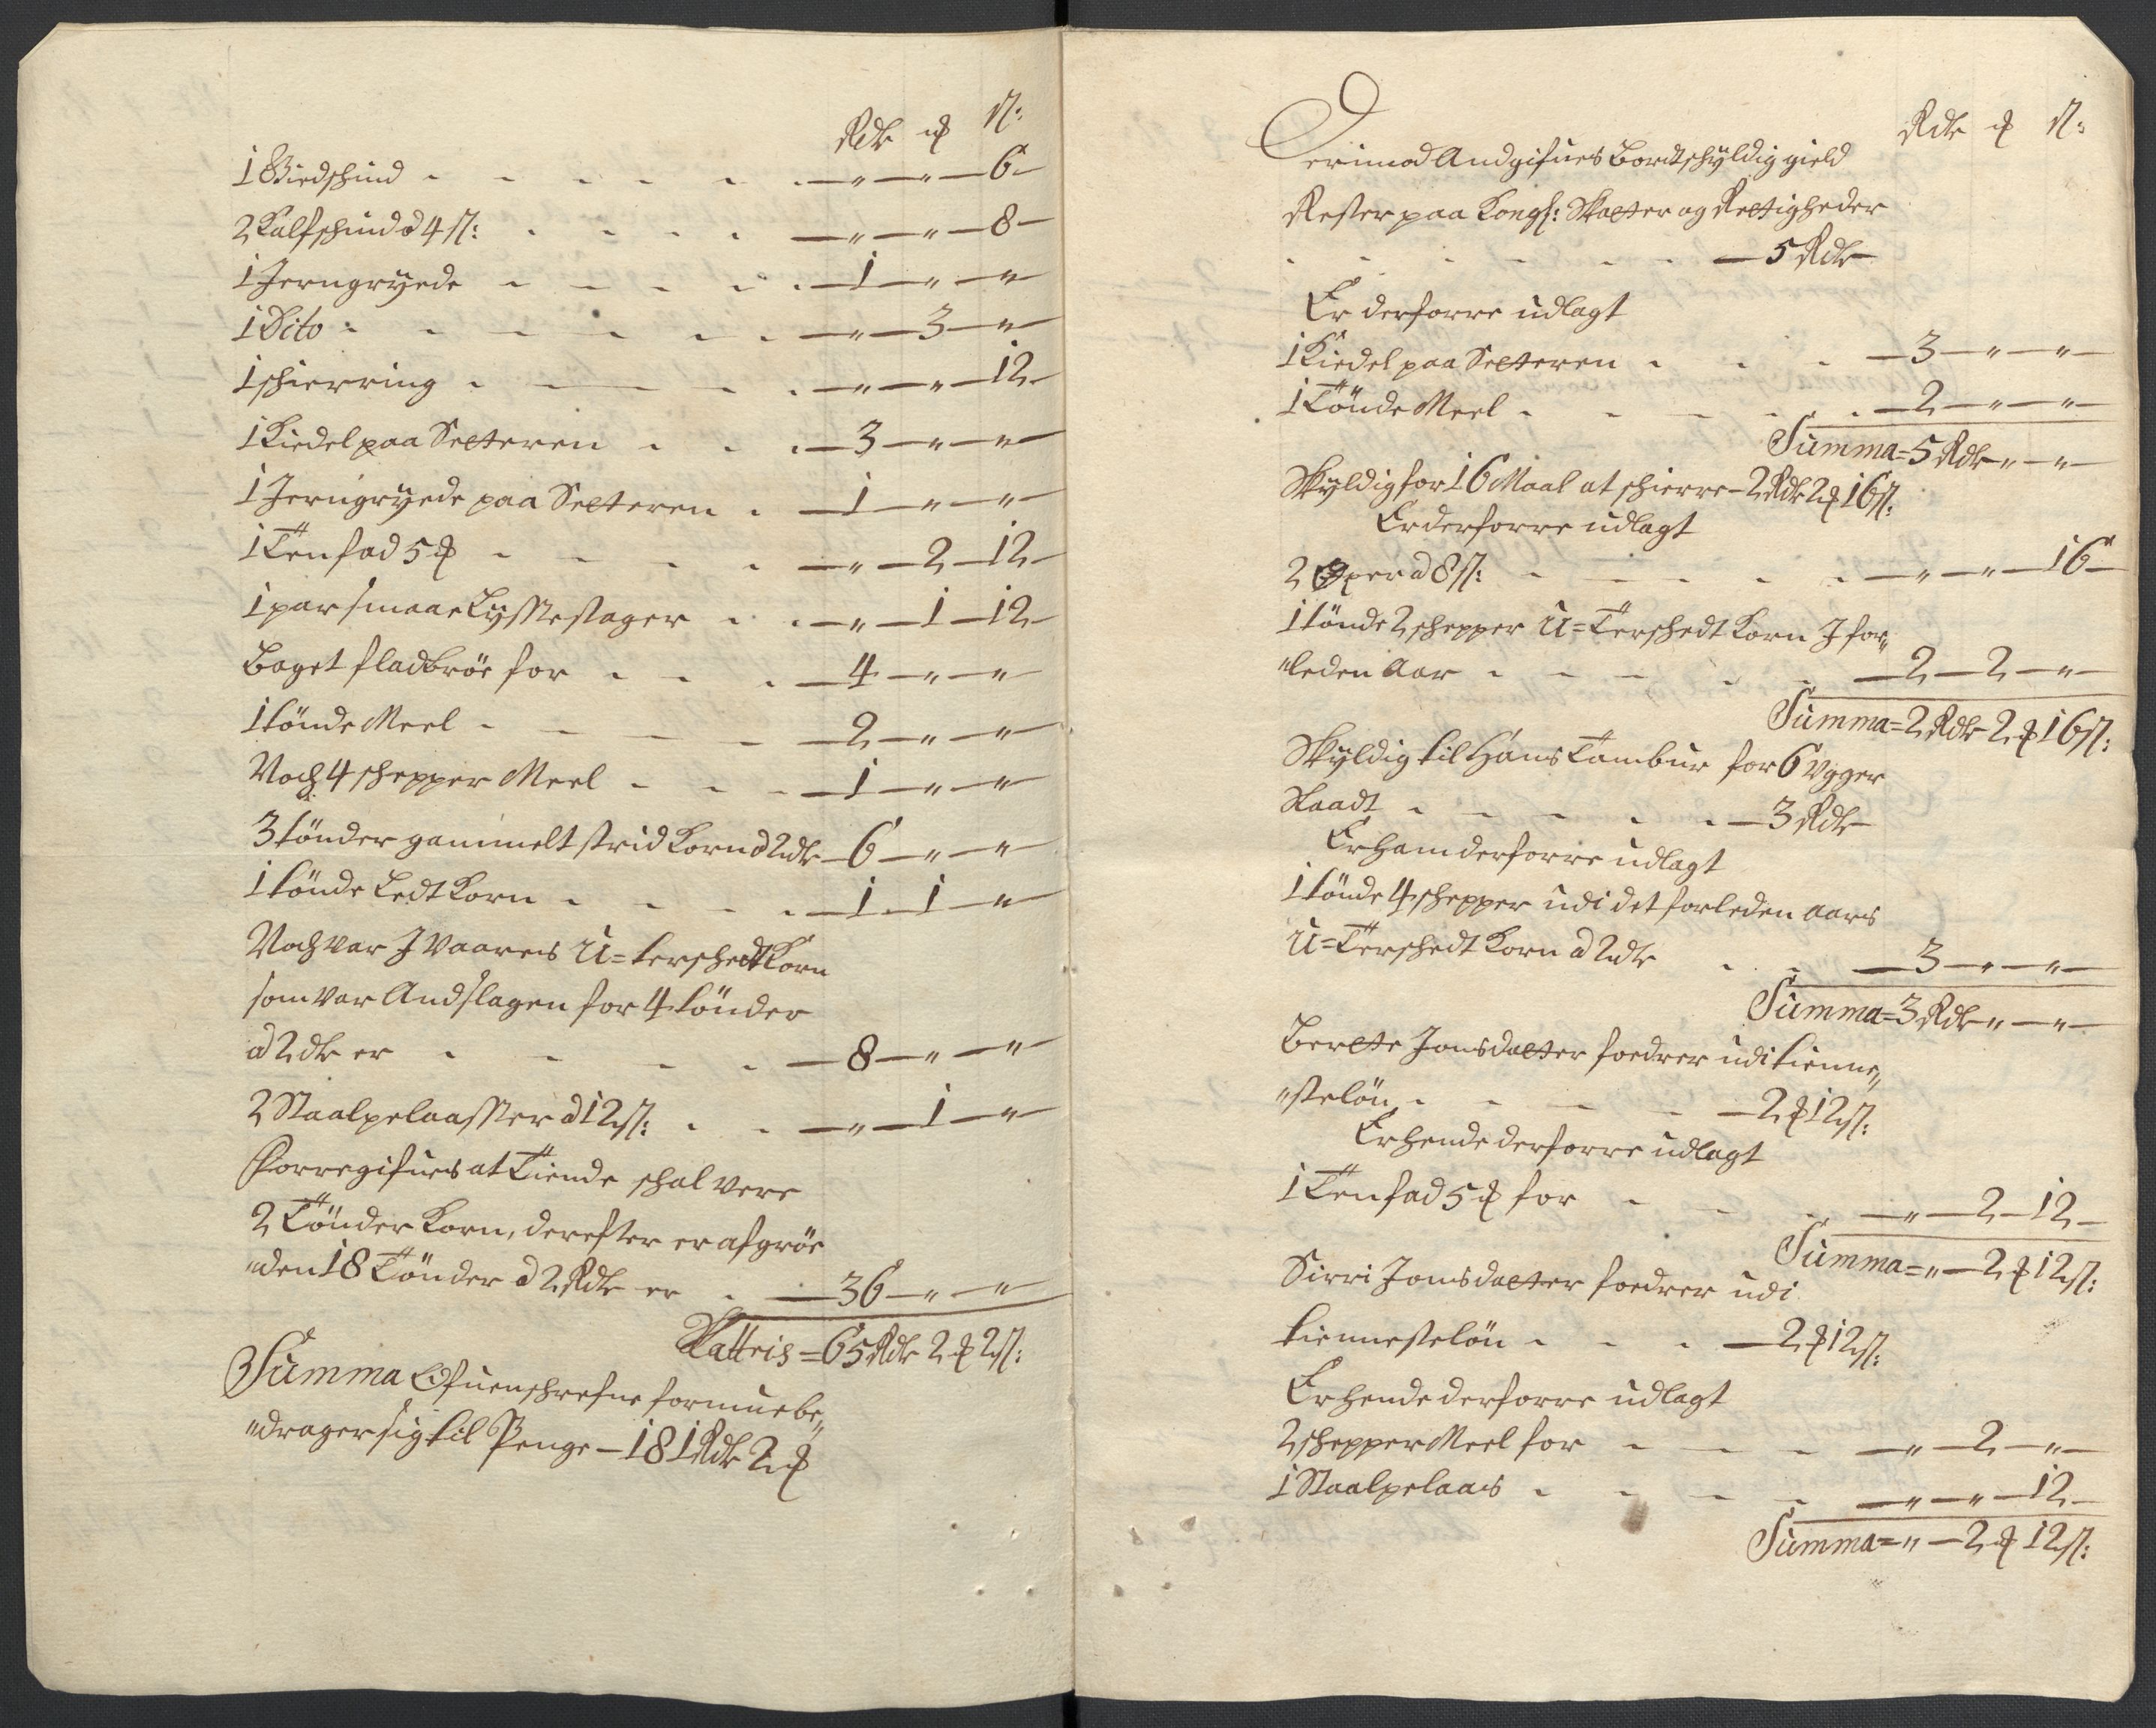 Rdr ꝑ ß:
1 Giedschind - - - - - - " - " - 6 -
2 Kalfschind à 4 ß: - - - - " - " - 8 -
1 Jerngryede - - - - - 1 - " - "
1 Dito - - - - - - - " - 3 - "
1 schierring - - - - - " - " - 12 -
1 Kiedel paa Setteren - - - 3 - " - "
1 Jerngryede paa Setteren - 1 - " - "
1 Tenfad 5 ꝑ - - - - - " - 2 - 12 -
1 par smaae Lyssestager - - " - 1 - 12 -
Baget fladbröe for - - - 4 - " - "
1 tönde Meel - - - - - 2 - " - "
Noch 4 schepper Meel - - - 1 - " - "
3 tönder gammelt strid Korn à 2 dr - 6 - " - "
1 tönde Ledt Korn - - - - 1 - 1 - "
Noch var J Vaares U=terschedt Korn
som var Andslagen for 4 tönder
à 2 dr er - - - - 8 - " - "
2 Staalpelaasser à 12 ß: - - " - 1 - "
Forregifues at Tiende schal vere
2 Tönder Korn, derefter er afgröe
"den 18 Tönder à 2 Rdr er - - 36 - " - "
Latteris = 65 Rdr 2 ꝑ 2 ß:
Summa Ofuenschrefne formue be"
"drager sig til Penge - 181 Rdr 2 ꝑ
Rdr ꝑ ß:
Derimod Andgifues Bortschyldig gield
Rester paa Kongl: Skatter og Rettigheder
- - - - - - - 5 Rdr
Er derforre udlagt
1 Kiedel paa Setteren - - - 3 - " - "
1 Tönde Meel - - - - - 2 - " - "
Summa = 5 Rdr " - "
Skyldig for 16 Maal at schierre - 2 Rdr 2 ꝑ 16 ß:
Er derforre udlagt
2 Öxer à 8 ß: - - - - - " - " - 16 -
1 tönde 2 schepper U=Terschedt Korn J for"
"leden Aar - - - - - 2 - 2 - "
Summa = 2 Rdr 2 ꝑ 16 ß:
Skyldig til Hans Tambur for 6 Vgger
Kaadt - - - - - - 3 Rdr
Er ham derforre udlagt
1 tönde 4 schepper udi det forleden aars
U=Terschedt Korn à 2 dr - - 3 - " - "
Summa = 3 Rdr " - "
Berette Jonsdatter fordrer udi tienne"
"steløn - - - - - 2 ꝑ 12 ß:
Er hende derforre udlagt
1 Tenfad 5 ꝑ for - - - " - 2 - 12 -
Summa = " - 2 ꝑ 12 ß:
Sirri Jonsdatter fordrer udi
tiennesteløn - - - - 2 ꝑ 12 ß:
Er hende derforre udlagt
2 schepper Meel for - - - " - 2 - "
1 Staalpelaas - - - - " - " - 12 -
Summa = " - 2 ꝑ 12 ß: